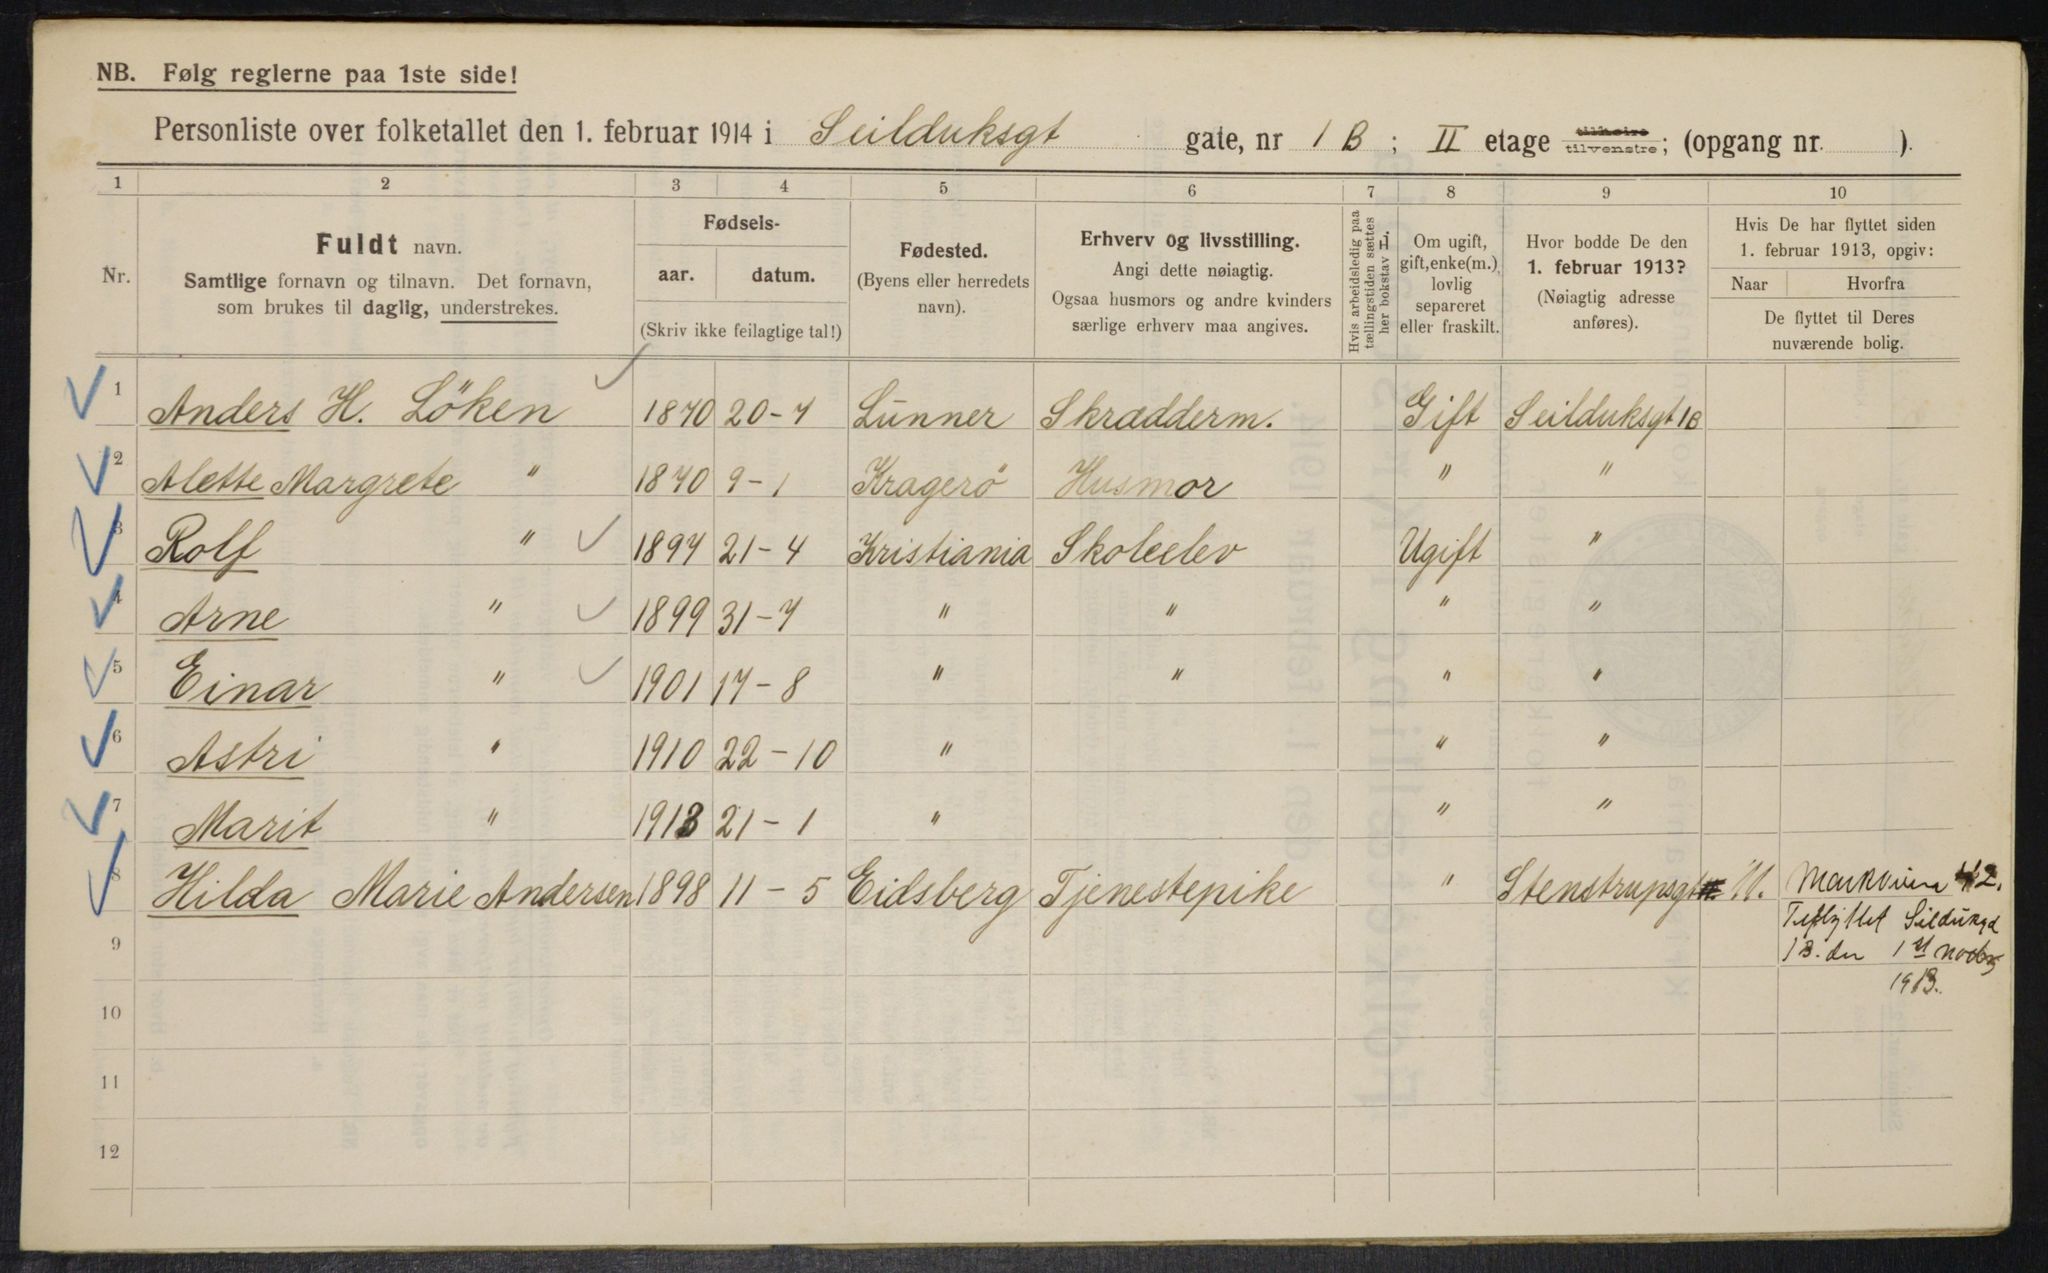 NB. Følg reglerne paa 1ste side!
Personliste over folketallet den 1. februar 1914 i Seilduksgt gate, nr 1 B ; II etage tilhøire tilvenstre; (opgang nr. ).
1 2 3 4 5 6 7 8 9 10
Nr.
Fuldt navn.
Samtlige fornavn og tilnavn. Det fornavn,
som brukes til daglig, understrekes.
Fødsels-
aar. datum.
(Skriv ikke feilagtige tal!)
Fødested.
(Byens eller herredets
navn).
Erhverv og livsstilling.
Angi dette nøiagtig.
Ogsaa husmors og andre kvinders
særlige erhverv maa angives.
Hvis arbeidsledig paa
tællingstiden sættes
her bokstav L.
Om ugift,
gift, enke(m.),
lovlig
separeret
eller fraskilt.
Hvor bodde De den
1. februar 1913?
(Nøiagtig adresse
anføres).
Hvis De har flyttet siden
1. februar 1913, opgiv:
Naar Hvorfra
De flyttet til Deres
nuværende bolig.
1 Anders H. Löken 1870 20-7 Lunner Skrædderm. Gift Seilduksgt 1B
2 Alette Margrete " 1870 9-1 Kragerö Husmor " "
3 Rolf " 1897 21-4 Kristiania Skoleelev Ugift "
4 Arne " 1899 31-7 " " " "
5 Einar " 1901 17-8 " " " "
6 Astri " 1910 22-10 " " "
7 Marit " 1913 21-1 " " "
8 Hilda Marie Andersen 1898 11-5 Eidsberg Tjenestepike " Stenstrupsgt 11.
Seilduksgd
1B. den 1st
1913.
9
10
11
12